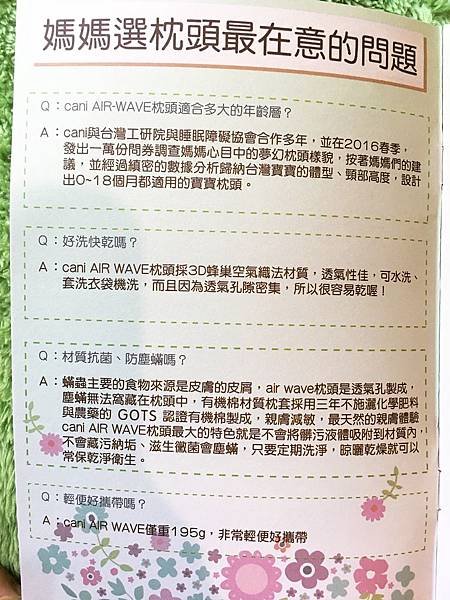 媽媽選枕頭最在意的問題
Q：cani AIR-WAVE枕頭適合多大的年齡層？
A：cani與台灣工研院與睡眠障礙協會合作多年，並在2016春季，
發出一萬份問券調查媽媽心目中的夢幻枕頭樣貌，按著媽媽們的建
議，並經過縝密的數據分析歸納台灣寶寶的體型、頸部高度，設計
出0~18個月都適用的寶寶枕頭。
Q：好洗快乾嗎？
A：cani AIR WAVE枕頭採3D蜂巢空氣織法材質，透氣性佳，可水洗、
套洗衣袋機洗，而且因為透氣孔隙密集，所以很容易乾喔！
Q：材質抗菌、防塵蟎嗎？
A：蟎蟲主要的食物來源是皮膚的皮屑，air wave枕頭是透氣孔製成，
塵蟎無法窩藏在枕頭中，有機棉材質枕套採用三年不施灑化學肥料
與農藥的 GOTS 認證有機棉製成，親膚減敏，最天然的親膚體驗
cani AIR WAVE枕頭最大的特色就是不會將髒污液體吸附到材質內，
不會藏污納垢、滋生黴菌會塵蟎，只要定期洗淨，晾曬乾燥就可以
常保乾淨衛生。
Q：輕便好攜帶嗎？
A：cani AIR WAVE僅重195g，非常輕便好攜帶